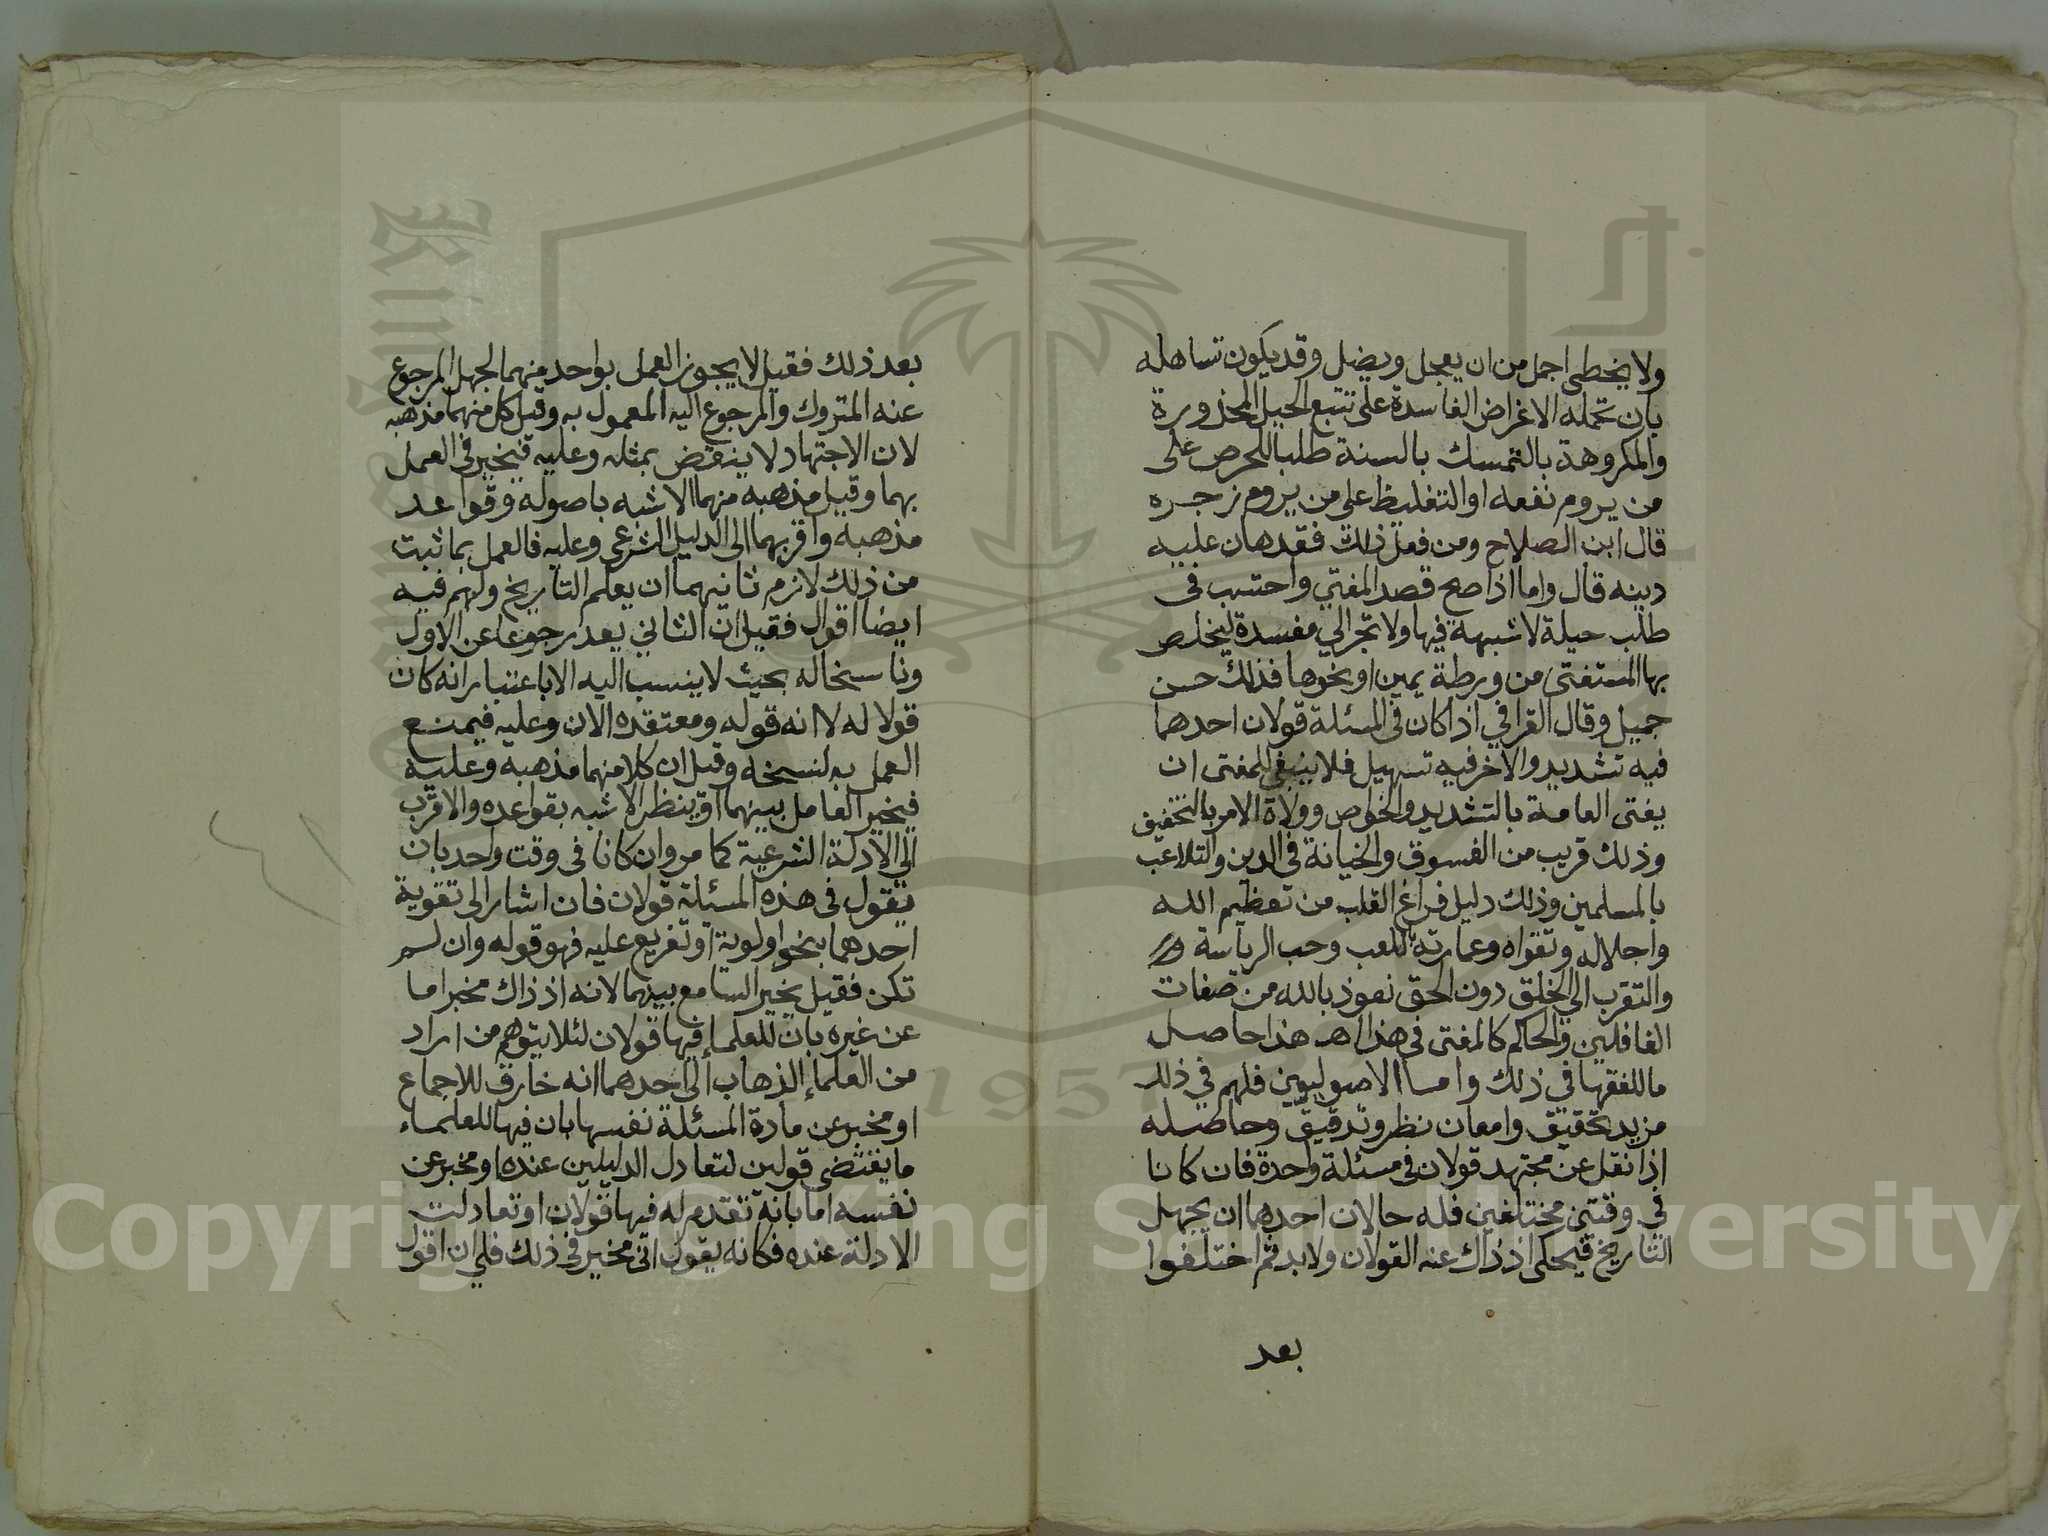 ولا يخطي اجمل من ان يعجل ويضل وقد يكون تساهله
بان تحمله الاغراض الفاسدة على تتبع الحيل المحذورة
والمكروهة بالتمسك بالسنة طلبا للحرص على
من يروم نفعه او التغليظ على من يروم زجره
قال ابن الصلاح ومن فعل ذلك فقد هان عليه
دينه قال واما اذا صح قصد المفتي واحتسب فى
طلب حيلة لا شبهة فيها ولا تجر الي مفسدة ليخلص
بها المستفتى من ورطة يمين او نحوها فذلك حسن
جميل وقال القرافي اذا كان فى المسئلة قولان احدهما
فيه تشديد والاخر فيه تسهيل فلا ينبغى للمفتى ان
يفتى العامة بالتشديد والخواص وولاة الامر بالتخفيف
وذلك قريب من الفسوق والخيانة فى الدين والتلاعب
بالمسلمين وذلك دليل فراغ القلب من تعظيم الله
واجلاله وتقواه وعمارته للعب وحب الرياسة
والتقرب الي الخلق دون الحق نعوذ بالله من صفات
الغافلين والحاكم كالمفتى فى هذا اهـ هذا حاصل
ما للفقها في ذلك وامسا الاصوليين فلهم في ذلك
مزيد تحقيق وامعان نظر وتدقيق وحاصله
اذا نقل عن مجتهد قولان فى مسئلة واحدة فان كانا
في وقتين مختلفين فله حالان احدهما ان يجهل
التاريخ فيحكى اذ ذاك عنه القولان ولا بد ثم اختلفوا
بعد
بعد ذلك فقيل لا يجوز العمل بواحد منهما لجهل المرجوع
عنه المتروك والمرجوع اليه المعمول به وقيل كل منهما مذهبه
لان الاجتهاد لا ينقض بمثله وعليه فيتخير فى العمل
بهما وقيل مذهبه منهما الاشبه باصوله وقواعد
مذهبه واقربهما الى الدليل الشرعي وعليه فالعمل بما ثبت
من ذلك لازم ثانيهما ان يعلم التاريخ ولهم فيه
ايضا اقوال فقيل ان الثاني يعد رجوعا عن الاول
وناسخا له بحيث لا ينسب اليه الا باعتبار انه كان
قولا له لا انه قوله ومعتقده الان وعليه فيمنع
العمل به لنسخه وقيل ان كلا منهما مذهبه وعليه
فيخير العامل بينهما او ينظر الاشبه بقواعده والاقرب
الي الادلة الشرعية كما مر وان كانا فى وقت واحد بان
يقول فى هذه المسئلة قولان فان اشار الى تقوية
احدهما بنحو اولوية او تفريع عليه فهو قوله وان لم
تكن فقيل يخير السامع بينهما لانه اذ ذاك مخبر اما
عن غيره بان للعلماء فيها قولان لئلا يتوهم من اراد
من العلماء الذهاب الى احدهما انه خارق للاجماع
او مخبر عن مادة المسئلة نفسها بان فيها للعلماء
ما يقتضى قولين لتعادل الدليلين عنده او مخبر عن
نفسه اما بانه تقدم له فيها قولان او تعادلت
الادلة عنده فكانه يقول انى مخير فى ذلك فلي ان اقول
Copyright © King Saud University
1957